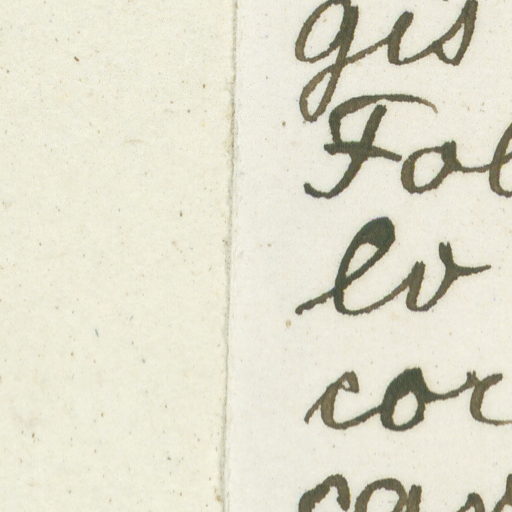 gis
Fol
ev
cor